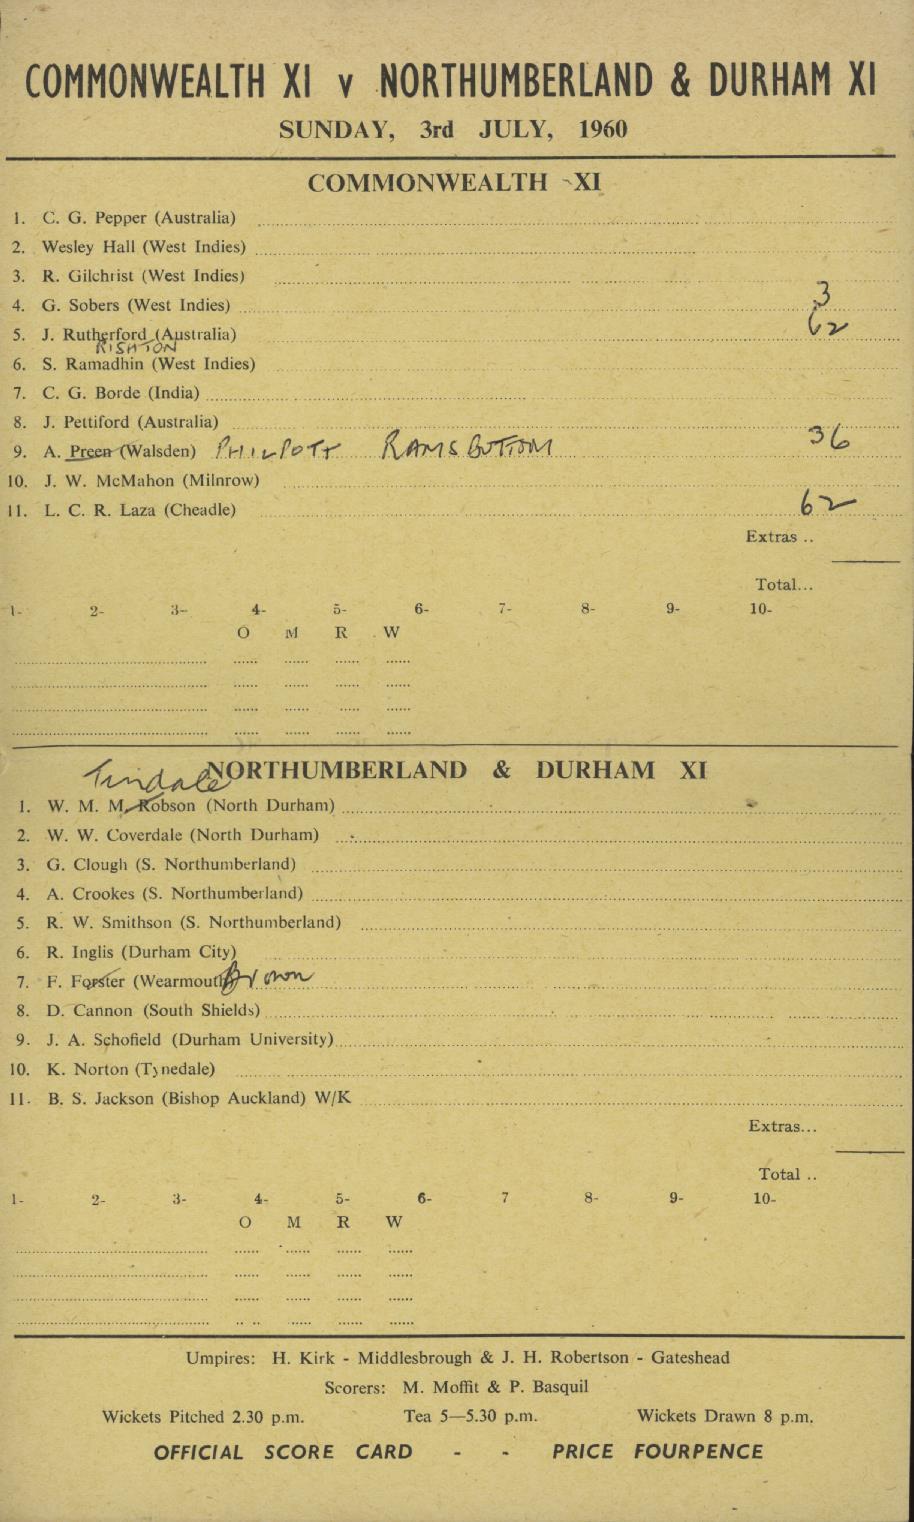 COMMONWEALTH XI v NORTHUMBERLAND & DURHAM XI
SUNDAY, 3rd JULY, 1960
COMMONWEALTH XI
1. C. G. Pepper (Australia)
2. Wesley Hall (West Indies)
3. R. Gilchrist (West Indies)
4. G. Sobers (West Indies) 3
5. J. Rutherford (Australia) 62
RISHTON
6. S. Ramadhin (West Indies)
7. C. G. Borde (India)
8. J. Pettiford (Australia)
9. A. Preen (Walsden) PHILPOTT RAMSBOTTOM 36
10. J. W. McMahon (Milnrow)
11. L. C. R. Laza (Cheadle) 62
Extras ..
Total...
1- 2- 3- 4- 5- 6- 7- 8- 9- 10-
O M R W
Tindale
NORTHUMBERLAND & DURHAM XI
1. W. M. M. Robson (North Durham)
2. W. W. Coverdale (North Durham)
3. G. Clough (S. Northumberland)
4. A. Crookes (S. Northumberland)
5. R. W. Smithson (S. Northumberland)
6. R. Inglis (Durham City)
7. F. Forster (Wearmouth) Brown
8. D. Cannon (South Shields)
9. J. A. Schofield (Durham University)
10. K. Norton (Tynedale)
11. B. S. Jackson (Bishop Auckland) W/K
Extras...
Total ..
1- 2- 3- 4- 5- 6- 7 8- 9- 10-
O M R W
Umpires: H. Kirk - Middlesbrough & J. H. Robertson - Gateshead
Scorers: M. Moffit & P. Basquil
Wickets Pitched 2.30 p.m. Tea 5—5.30 p.m. Wickets Drawn 8 p.m.
OFFICIAL SCORE CARD - - PRICE FOURPENCE